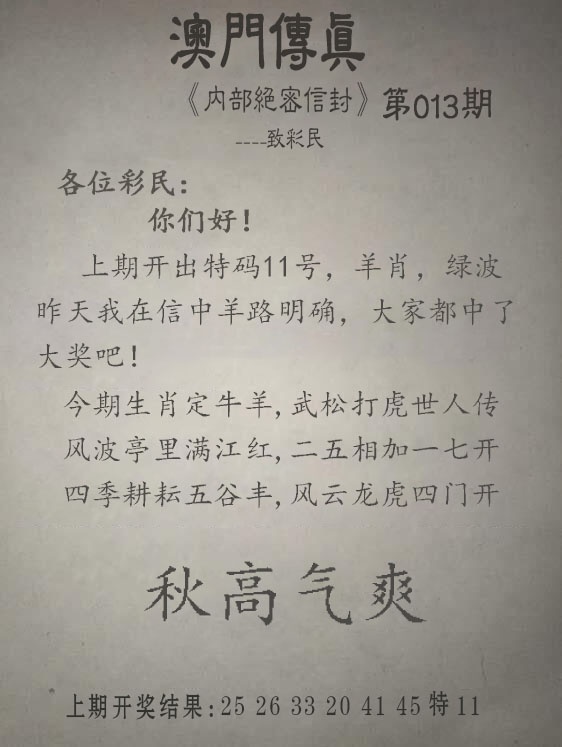 澳門傳眞
《内部絕密信封》第013期
----致彩民
各位彩民：
你们好！
上期开出特码11号，羊肖，绿波
昨天我在信中羊路明确，大家都中了
大奖吧！
今期生肖定牛羊,武松打虎世人传
风波亭里满江红,二五相加一七开
四季耕耘五谷丰,风云龙虎四门开
秋高气爽
上期开奖结果:25 26 33 20 41 45 特 11